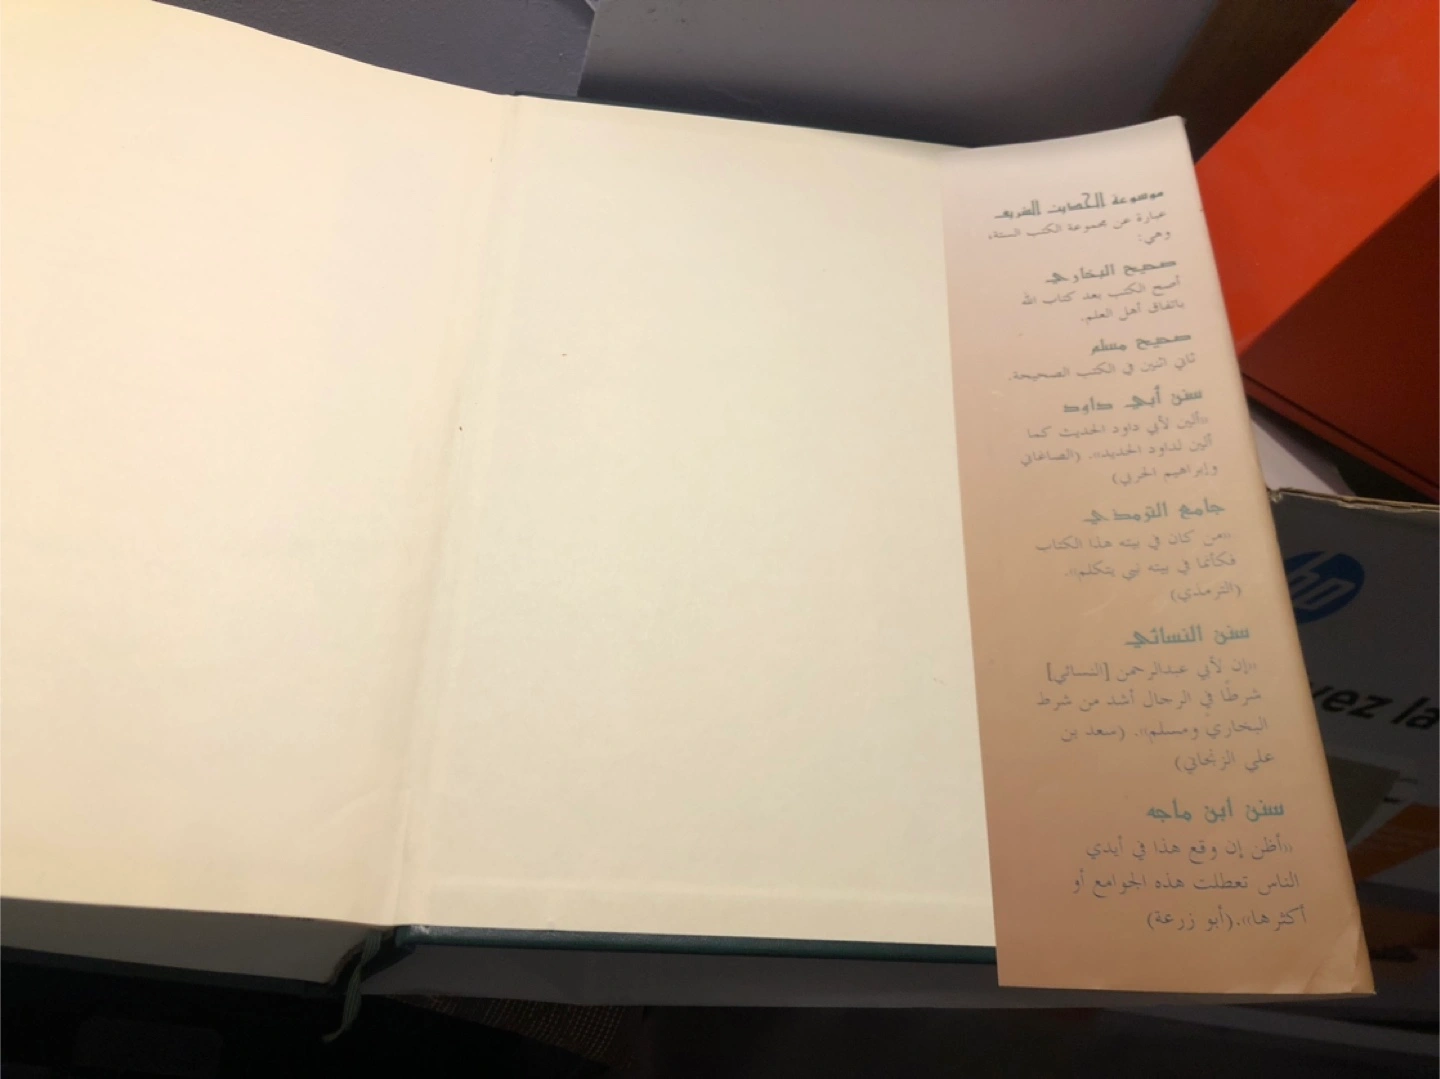 موسوعة الحديث الشريف
عبارة عن مجموعة الكتب الستة،
وهي:
صحيح البخاري
أصح الكتب بعد كتاب الله
باتفاق أهل العلم.
صحيح مسلم
ثاني اثنين في الكتب الصحيحة.
سنن أبي داود
«ألين لأبي داود الحديث كما
ألين لداود الحديد». (الصاغاني
وإبراهيم الحربي)
جامع الترمذي
«من كان في بيته هذا الكتاب
فكأنما في بيته نبي يتكلم».
(الترمذي)
سنن النسائي
«إن لأبي عبدالرحمن [النسائي]
شرطًا في الرجال أشد من شرط
البخاري ومسلم». (سعد بن
علي الزنجاني)
سنن ابن ماجه
«أظن إن وقع هذا في أيدي
الناس تعطلت هذه الجوامع أو
أكثرها».(أبو زرعة)
hp
vez la